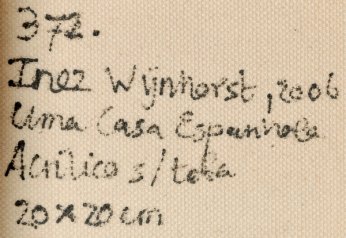 372.
Inez Wijnhorst, 2006
Uma Casa Espanhola
Acrílico s/tela
20x20cm